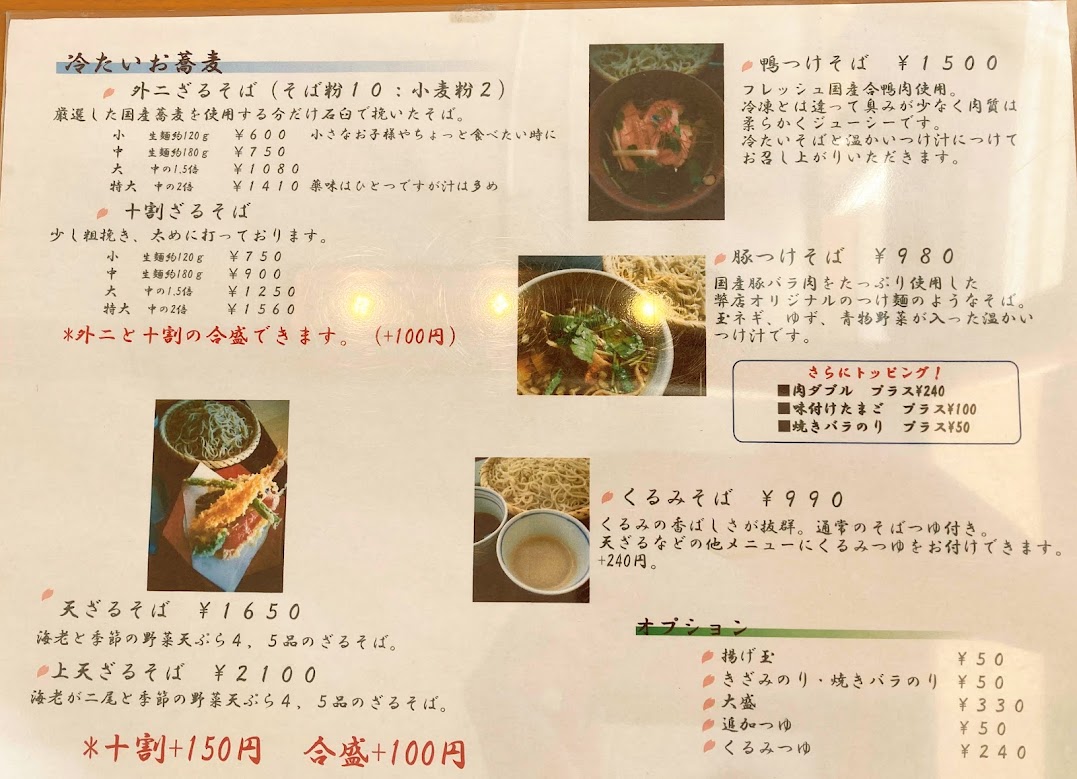 冷たいお蕎麦
外二ざるそば（そば粉１０：小麦粉２）
厳選した国産蕎麦を使用する分だけ石臼で挽いたそば。
小 生麺約120g ￥６００ 小さなお子様やちょっと食べたい時に
中 生麺約180g ￥７５０
大 中の1.5倍 ￥１０８０
特大 中の2倍 ￥１４１０ 薬味はひとつですが汁は多め
十割ざるそば
少し粗挽き、太めに打っております。
小 生麺約120g ￥７５０
中 生麺約180g ￥９００
大 中の1.5倍 ￥１２５０
特大 中の2倍 ￥１５６０
*外二と十割の合盛できます。（+100円）
天ざるそば ￥１６５０
海老と季節の野菜天ぷら４，５品のざるそば。
上天ざるそば ￥２１００
海老が二尾と季節の野菜天ぷら４，５品のざるそば。
*十割+150円 合盛+100円
鴨つけそば ￥１５００
フレッシュ国産合鴨肉使用。
冷凍とは違って臭みが少なく肉質は
柔らかくジューシーです。
冷たいそばと温かいつけ汁につけて
お召し上がりいただきます。
豚つけそば ￥９８０
国産豚バラ肉をたっぷり使用した
弊店オリジナルのつけ麺のようなそば。
玉ネギ、ゆず、青物野菜が入った温かい
つけ汁です。
さらにトッピング！
■肉ダブル プラス¥240
■味付けたまご プラス¥100
■焼きバラのり プラス¥50
くるみそば ￥９９０
くるみの香ばしさが抜群。通常のそばつゆ付き。
天ざるなどの他メニューにくるみつゆをお付けできます。
+240円。
オプション
揚げ玉 ￥５０
きざみのり・焼きバラのり ￥５０
大盛 ￥３３０
追加つゆ ￥５０
くるみつゆ ￥２４０